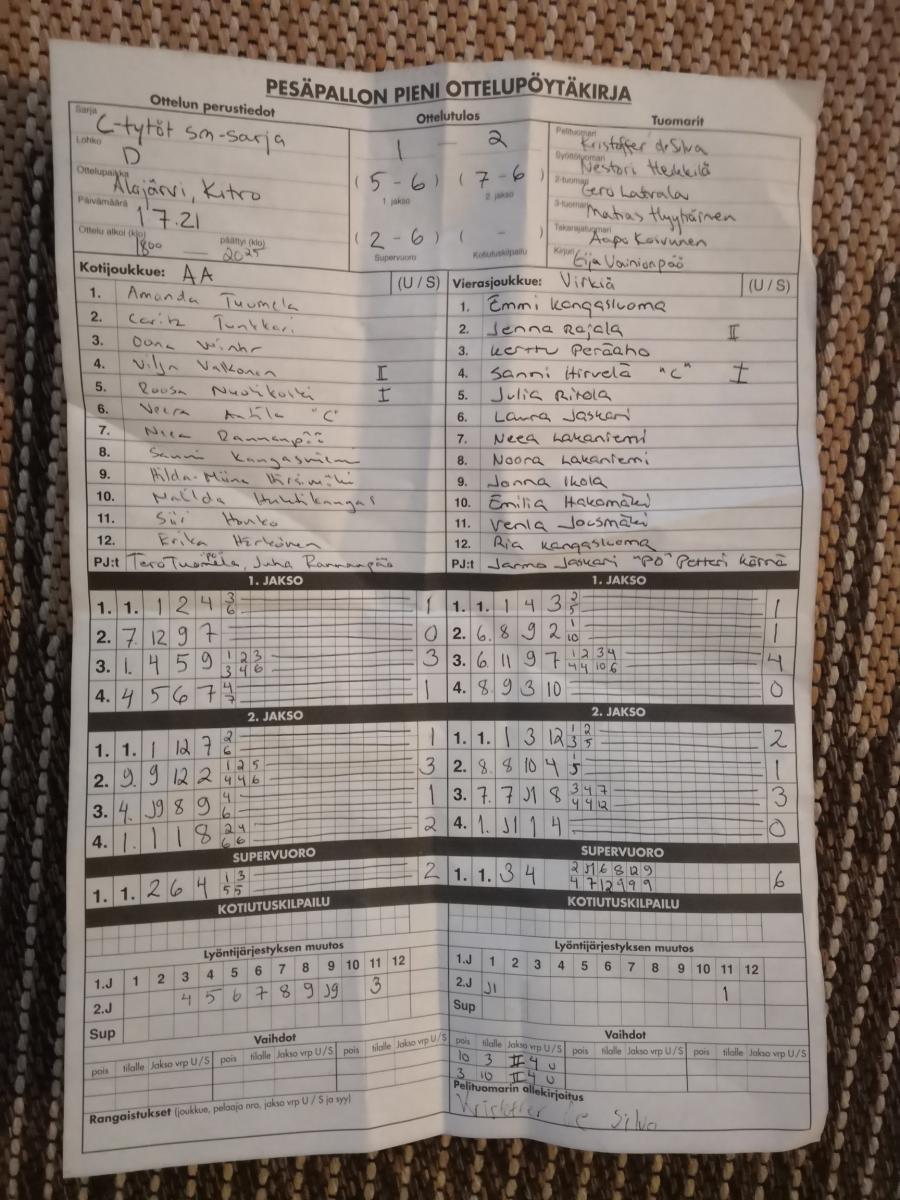 PESÄPALLON PIENI OTTELUPÖYTÄKIRJA
Ottelun perustiedot
Sarja C-tytöt sm-sarja
Lohko D
Ottelupaikka Alajärvi, Kitro
Päivämäärä 1 7.21
Ottelu alkoi (klo) 1800 — päättyi (klo) 2025
Ottelutulos
1 — 2
(5 - 6) (7 - 6)
1. jakso 2. jakso
(2 - 6) ( - )
Supervuoro Kotiutuskilpailu
Tuomarit
Pelituomari Kristoffer de Silva
Syöttötuomari Nestori Heikkilä
2-tuomari
3-tuomari Matias Hyytiäinen
Takarajatuomari Aapo Koivunen
Kirjuri Eija Vainionpää
Kotijoukkue: AA (U / S)
1. Amanda Tuomela
2. Tunkkari
3. Oona
4. Vilja Valkonen I
5. Roosa I
6. Veera Anttila "C"
7. Neea Rannanpää
8. Sanni Kangasniemi
9. Hilda-Miina
10. Matilda Huhtikangas
11. Siri Honko
12. Erika Herkönen
PJ:t Tero Tuomela, "PO" Juha Rannanpää
Vierasjoukkue: Virkiä (U / S)
1. Emmi Kangasluoma
2. Jenna Rajala II
3. Kerttu Peräaho
4. Sanni Hirvelä "C" I
5. Julia Ritola
6. Laura Jaskari
7. Neea Lakaniemi
8. Noora Lakaniemi
9. Jonna Ikola
10. Emilia Hakomäki
11. Venla Jousmäki
12. Ria Kangasluoma
PJ:t Jarmo Jaskari "PO" Petteri Kärnä
1. JAKSO
1. 1. 1 2 4 3 1
6
2. 7. 12 9 7 0
3. 1. 4 5 9 1 2 3 3
3 4 6
4. 4 5 6 7 4 1
7
2. JAKSO
1. 1. 1 12 7 2 1
6
2. 9. 9 12 2 1 2 5 3
4 4 6
3. 4. J9 8 9 4 1
6
4. 1. 1 1 8 2 4 2
6 6
SUPERVUORO
1. 1. 2 6 4 1 3 2
5 5
KOTIUTUSKILPAILU
1. JAKSO
1. 1. 1 4 3 2 1
5
2. 6. 8 9 2 1 1
10
3. 6. 11 9 7 1 2 3 4 4
4 4 10 6
4. 8. 9 3 10 0
2. JAKSO
1. 1. 1 3 12 1 2 2
3 5
2. 8. 8 10 4 1 1
5
3. 7. 7 J1 8 3 4 7 3
4 4 12
4. 1. J1 1 4 0
SUPERVUORO
1. 1. 3 4 2 J1 6 8 12 9 6
4 7 12 9 9 9
KOTIUTUSKILPAILU
Lyöntijärjestyksen muutos
1.J 1 2 3 4 5 6 7 8 9 10 11 12
2.J 4 5 6 7 8 9 J9 3
Sup
Vaihdot
pois tilalle Jakso vrp U / S pois tilalle Jakso vrp U / S pois tilalle Jakso vrp U / S
Rangaistukset (joukkue, pelaaja nro, jakso vrp U / S ja syy)
Lyöntijärjestyksen muutos
1.J 1 2 3 4 5 6 7 8 9 10 11 12
2.J J1 1
Sup
Vaihdot
pois tilalle Jakso vrp U / S pois tilalle Jakso vrp U / S pois tilalle Jakso vrp U / S
10 3 II 4 U
3 10 II 4 U
Pelituomarin allekirjoitus
Kristoffer de Silva